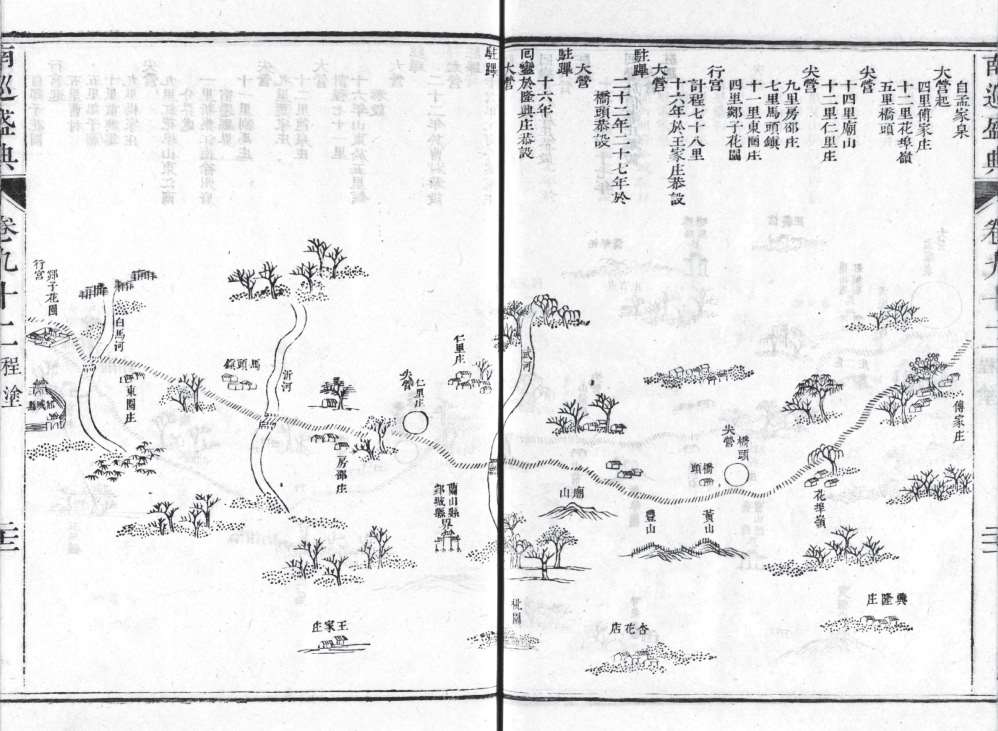 南巡盛典
卷九十二
程塗
自孟家泉
大營起
四里傅家庄
十二里花埠嶺
五里橋頭
尖營
十四里廟山
十二里仁里庄
尖營
九里房鄒庄
七里馬頭鎮
十一里東圈庄
四里郯子花園
行宮
計程七十八里
十六年於王家庄恭設
大營
駐蹕
二十二年二十七年於
橋頭恭設
大營
駐蹕
十六年
回鑾於隆興庄恭設
大營
駐蹕
傅家庄
花埠嶺
橋頭
尖營
橋頭
黃山
豐山
廟山
興隆庄
杏花店
桃園
武河
仁里庄
仁里庄
尖營
蘭山縣
郯城縣
界
房鄒庄
沂河
馬頭鎮
王家庄
東圈庄
白馬河
郯子花園
行宮
郯城縣
南巡盛典
卷九十二
程塗